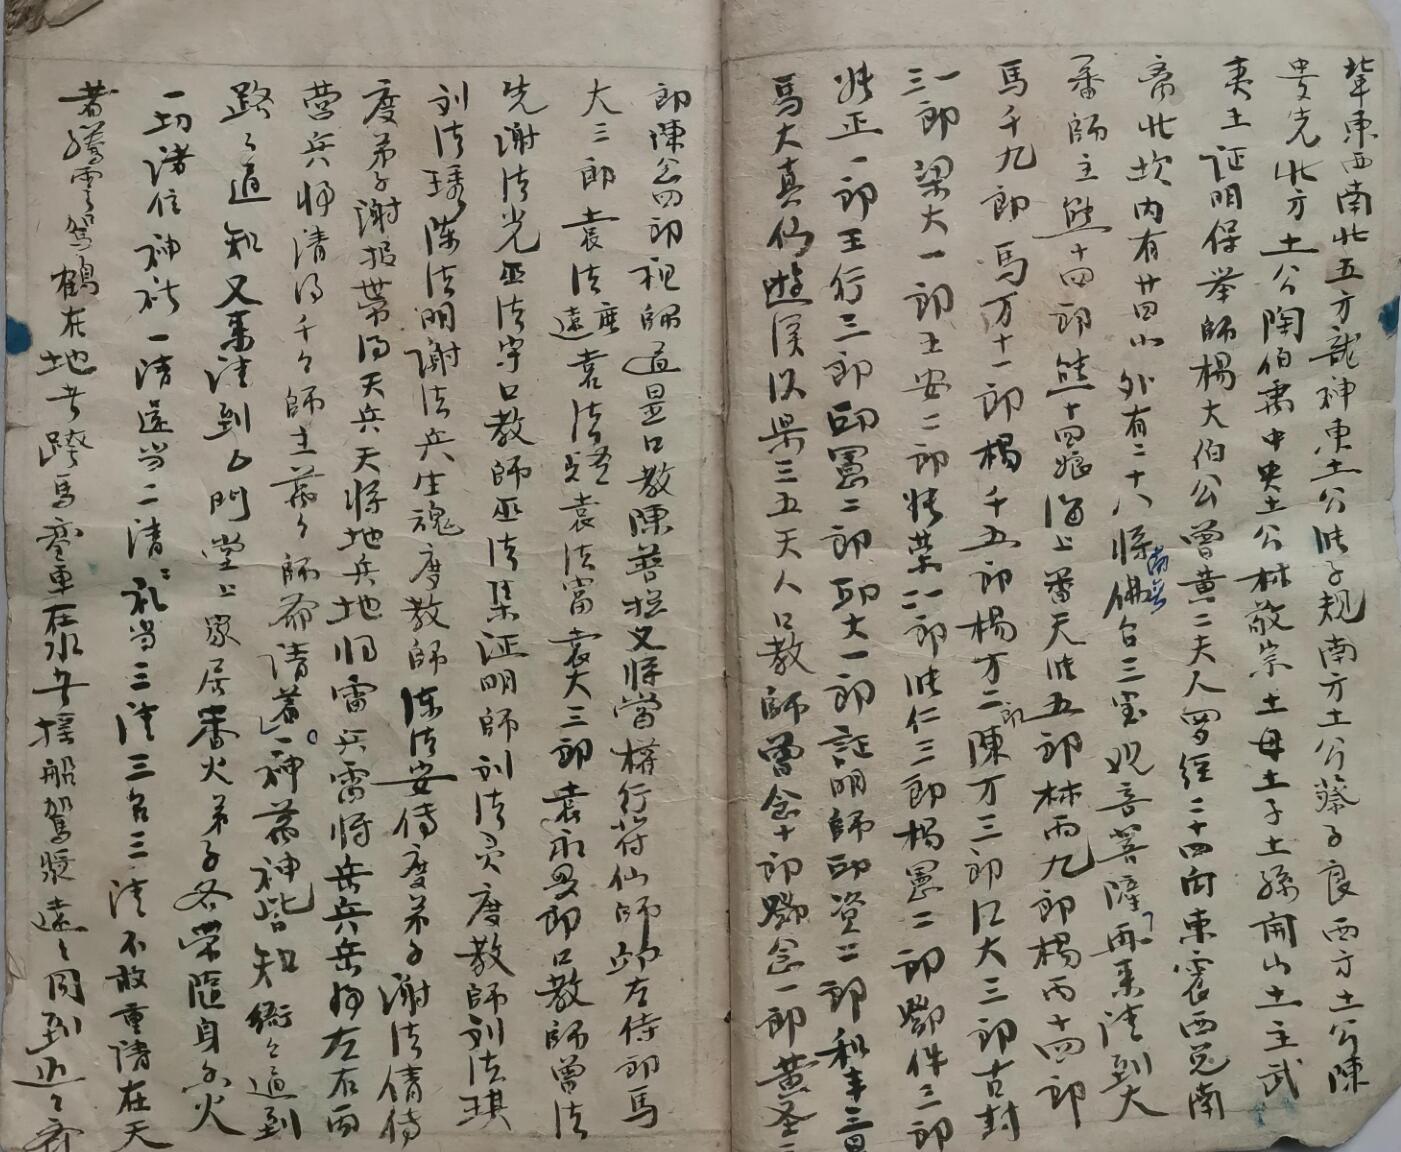 輩東西南北五方龍神東土公張子規南方土公蔡子良西方土公陳
貴先北方土公陶伯禹中央土公林敬宗土母土子土孫開山土主武
夷土证明保举師楊大伯公曾黄二夫人罗经二十四向東震西兑南
离北坎内有廿四山外有二十八將南無佛台三宝观音菩薩再来请到大
番師主熊十四郎熊十四娘 上番天张五郎林丙九郎楊丙十四郎
馬千九郎馬万十一郎楊千五郎楊万二郎陳万三郎江大三郎古封
三一郎梁大一郎王安二郎 荣二郎张仁三郎楊憲二郎鄧件三郎
正一郎王行三郎邱憲二郎邱大一郎証明師邱资二郎 三
馬大真仙遊溪洪果三五天人口教師曾念十郎鄧念一郎黄圣二
郎陳公四郎祖師道显口教陳普 又 行符仙師邱左侍郎馬
大三郎袁法 遠袁法 袁法富袁大三郎袁永 郎口教師曾法
先謝法光巫法宇口教師巫法果证明師刘法灵度教師刘法琪
刘法琇陳法明謝法兵生魂度教師陈法安侍度弟子謝法倩侍
度弟子謝报带得天兵天將地兵地將雷兵雷將岳兵岳將左右两
营兵将清得千々師主萬々師爺請着一神萬神皆知衕々通到
路々通知又来请到厶門堂上家居香火弟子各带隨身香火
一切諸位神祇一请還当二请二礼当三请三召三请不敢重請在天
者騰雲駕鶴在地者跨馬 車在水者摇船駕漿遠々同到近々齐